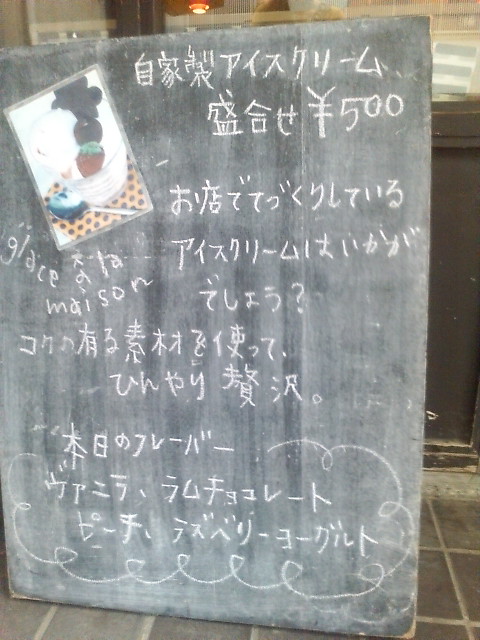 自家製アイスクリーム
盛合せ ¥500
お店でてづくりしている
アイスクリームはいかが
でしょう?
glace à la
maison
コクの有る素材を使って、
ひんやり贅沢。
本日のフレーバー
ヴァニラ、ラムチョコレート
ピーチ、ラズベリーヨーグルト